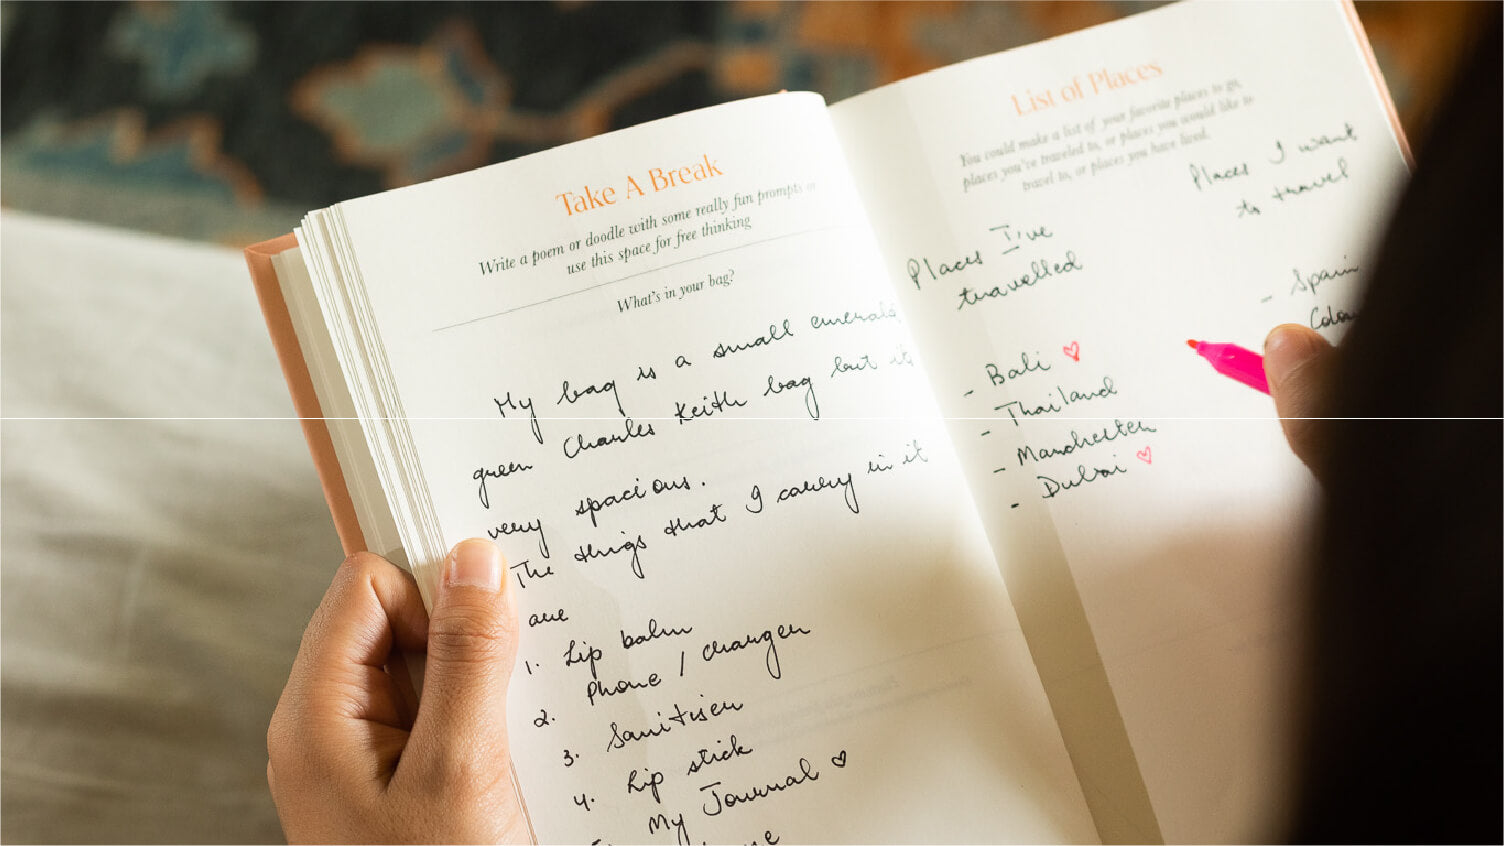 Take A Break
Write a poem or doodle with some really fun prompts or
use this space for free thinking
What's in your bag?
My bag is a small emerald
green Charles Keith bag but it's
very spacious.
The things that I carry in it
are
1. Lip balm
2. Phone / charger
3. Sanitiser
4. Lip stick
My Journal ♡
List of Places
You could make a list of your favorite places to go,
places you've traveled to, or places you would like to
travel to, or places you have lived.
Places I've
travelled
- Bali ♡
- Thailand
- Manchester
- Dubai ♡
Places I want
to travel
- Spain